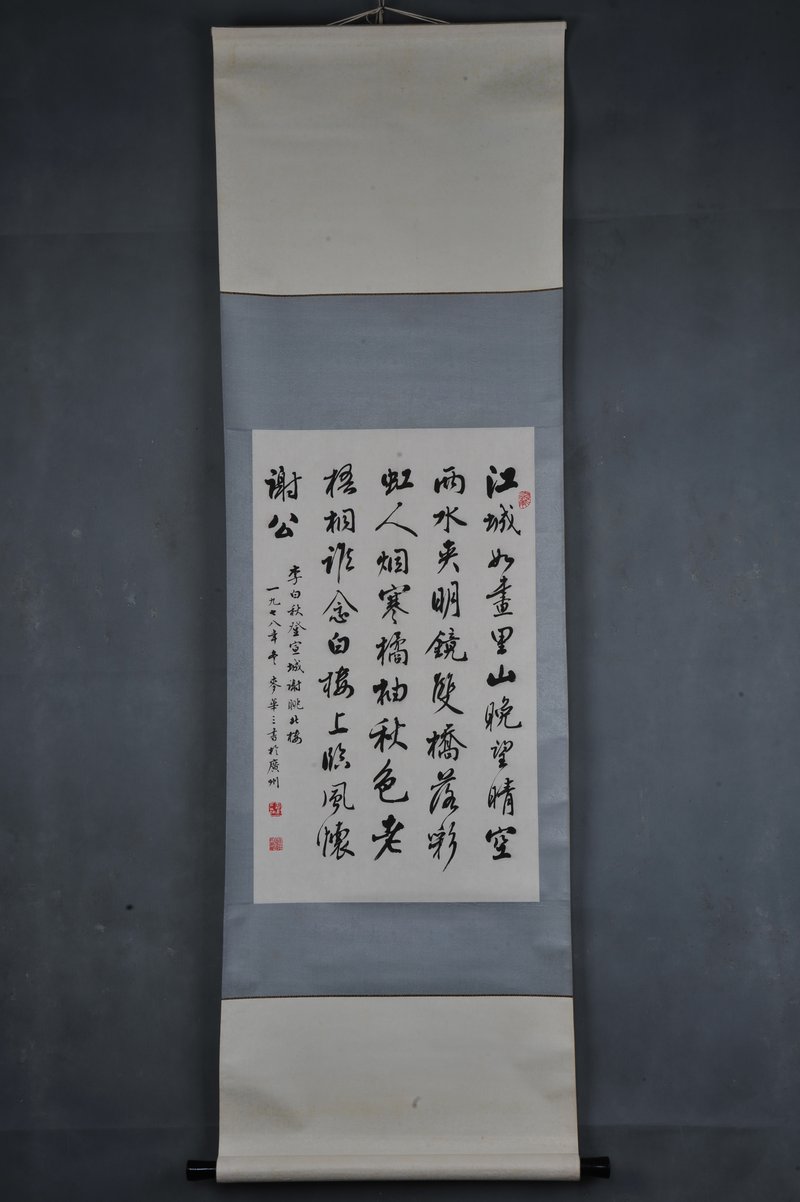 江城如畫里山晚望晴空
兩水夾明鏡雙橋落彩
虹人烟寒橘柚秋色老
梧桐誰念白樓上臨風懷
謝公
李白秋登宣城謝朓北樓
一九七八年冬麥華三書於廣州